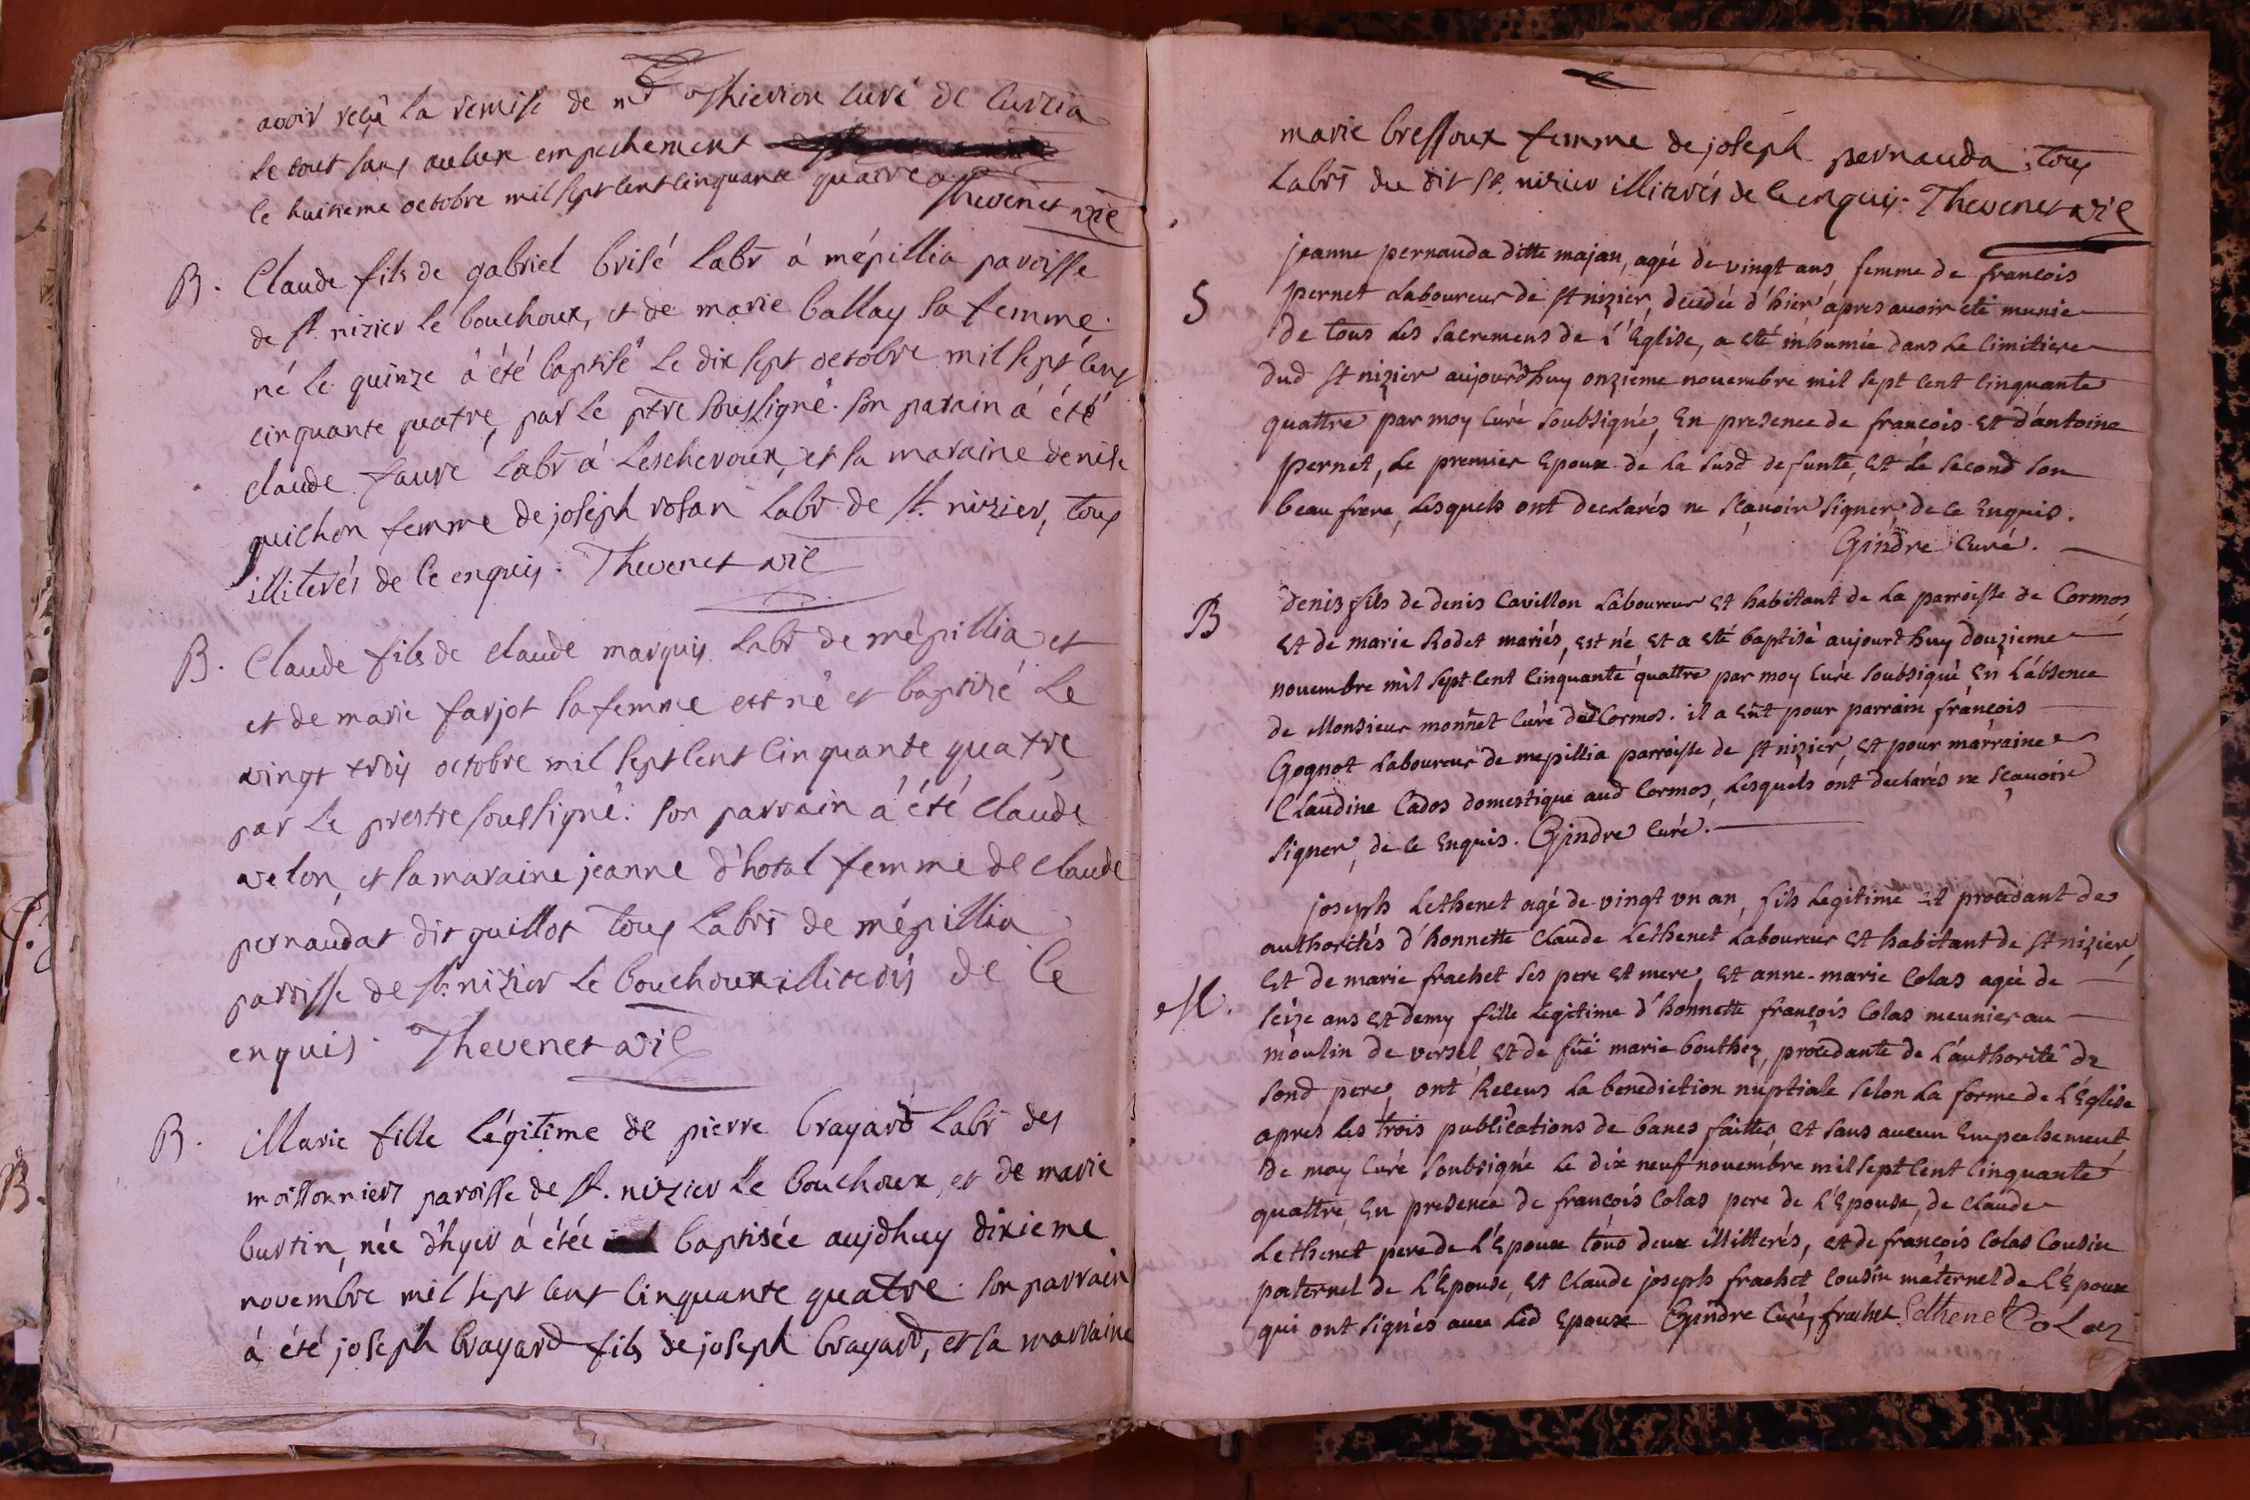 avoir reçû la remise de mr Thievion curé de curcia
le tout sans auleun empechement
le huitieme octobre mil sept cent cinquante quatre Thevenet vic
B. Claude fils de gabriel brisé labr á mépillia paroisse
de st. nizier le bouchoux, et de marie ballay sa femme.
né le quinze á été baptisé le dix sept octobre mil sept cent
cinquante quatre, par le ptre soussigné. son parain á été
claude favre labr á Leschevoux, et sa maraine denise
guichon femme de joseph rosan labr de st. nizier, tous
illiterés de ce enquis. Thevenet vic
B. Claude fils de claude marquis labr de mépillia et
et de marie farjot sa femme est né et baptizé le
vingt trois octobre mil sept cent cinquante quatre
par le prestre soussigné. son parrain á été claude
velon, et sa maraine jeanne d'hotal femme de claude
pernaudat dit guillot tous labrs de mépillia
paroisse de st. nizier le bouchoux illiterés de ce
enquis. Thevenet vic
B. Marie fille légitime de pierre brayard labr des
moissonniers paroisse de st. nizier le bouchoux, et de marie
burtin, née d'hyer á étée baptisée aujdhuy dixieme
novembre mil sept cent cinquante quatre. son parrain
á été joseph brayard fils de joseph brayard, et sa marraine
marie bressoux femme de joseph pernauda, tous
labrs du dit st. nizier illiterés de ce enquis. Thevenet vic
jeanne pernauda ditte majan, agée de vingt ans femme de françois
S pernet Laboureur de st nizier, decedée d'hier apres avoir eté munie
de tous les sacremens de L'Eglise, a eté inhumée dans le cimitiere
dud st nizier aujourdhuy onzieme novembre mil sept cent cinquante
quattre par moy curé soubsigné, En presence de françois et d'antoine
pernet, le premier Epoux de la susd defunte, et le second son
beau frere, lesquels ont declarés ne sçavoir signer, de ce Enquis.
Gindre curé.
B Denis fils de denis Cavillon Laboureur et habitant de la parroisse de Cormos,
et de marie Rodet mariés, est né et a eté baptisé aujourdhuy douzieme
novembre mil sept cent cinquante quattre par moy curé soubsigné En L'absence
de Monsieur monnet curé dud Cormos. il a eut pour parrain françois
Gognot Laboureur de mepillia parroisse de st nizier et pour marraine
Claudine Cados domestique aud Cormos, Lesquels ont declarés ne sçavoir
signer, de ce Enquis. Gindre curé.
joseph Lethenet agé de vingt un an, fils legitime et procedant des
authorités d'honnette Claude Lethenet Laboureur et habitant de st nizier,
et de marie frachet ses pere et mere, et anne-marie Colas agée de
M. seize ans et demy fille legitime d'honnette françois Colas meunier au
moulin de versel, et de füe marie bouthez, procedante de L'authorité de
sond pere, ont Receus la benediction nuptiale selon la forme de L'Eglise
apres les trois publications de bancs faittes, et sans aucun Empechement
de moy curé soubsigné le dix neuf novembre mil sept cent cinquante
quattre, En presence de françois Colas pere de L'Epouse, de claude
Lethenet pere de L'Epoux tous deux illitterés, et de françois Colas Cousin
paternel de L'Epouse, et claude joseph frachet cousin maternel de L'Epoux
qui ont signés avec led Epoux Gindre curé, frachet Lethenet Colaz